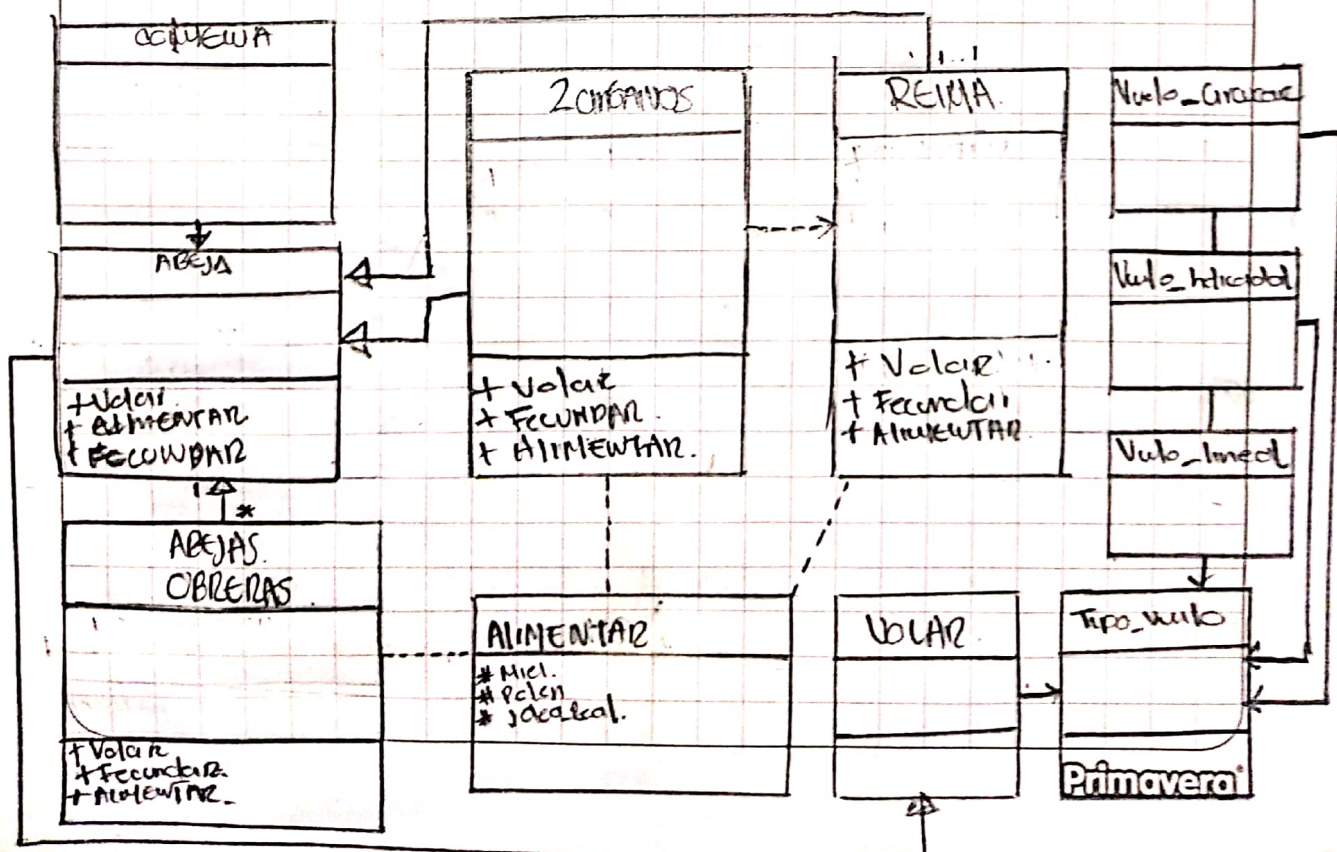 COLMENA
ABEJA
+ Volar
+ ALIMENTAR
+ FECUNDAR
1
*
ABEJAS
OBRERAS
+ Volar
+ Fecundar
+ ALIMENTAR
ZANGANOS
+ Volar
+ FECUNDAR
+ ALIMENTAR.
REINA
+ Volar
+ Fecundar
+ ALIMENTAR
ALIMENTAR
# Miel.
# Polen
VOLAR
Vuelo_Circular
Vuelo_Lineal
Tipo_vuelo
Primavera